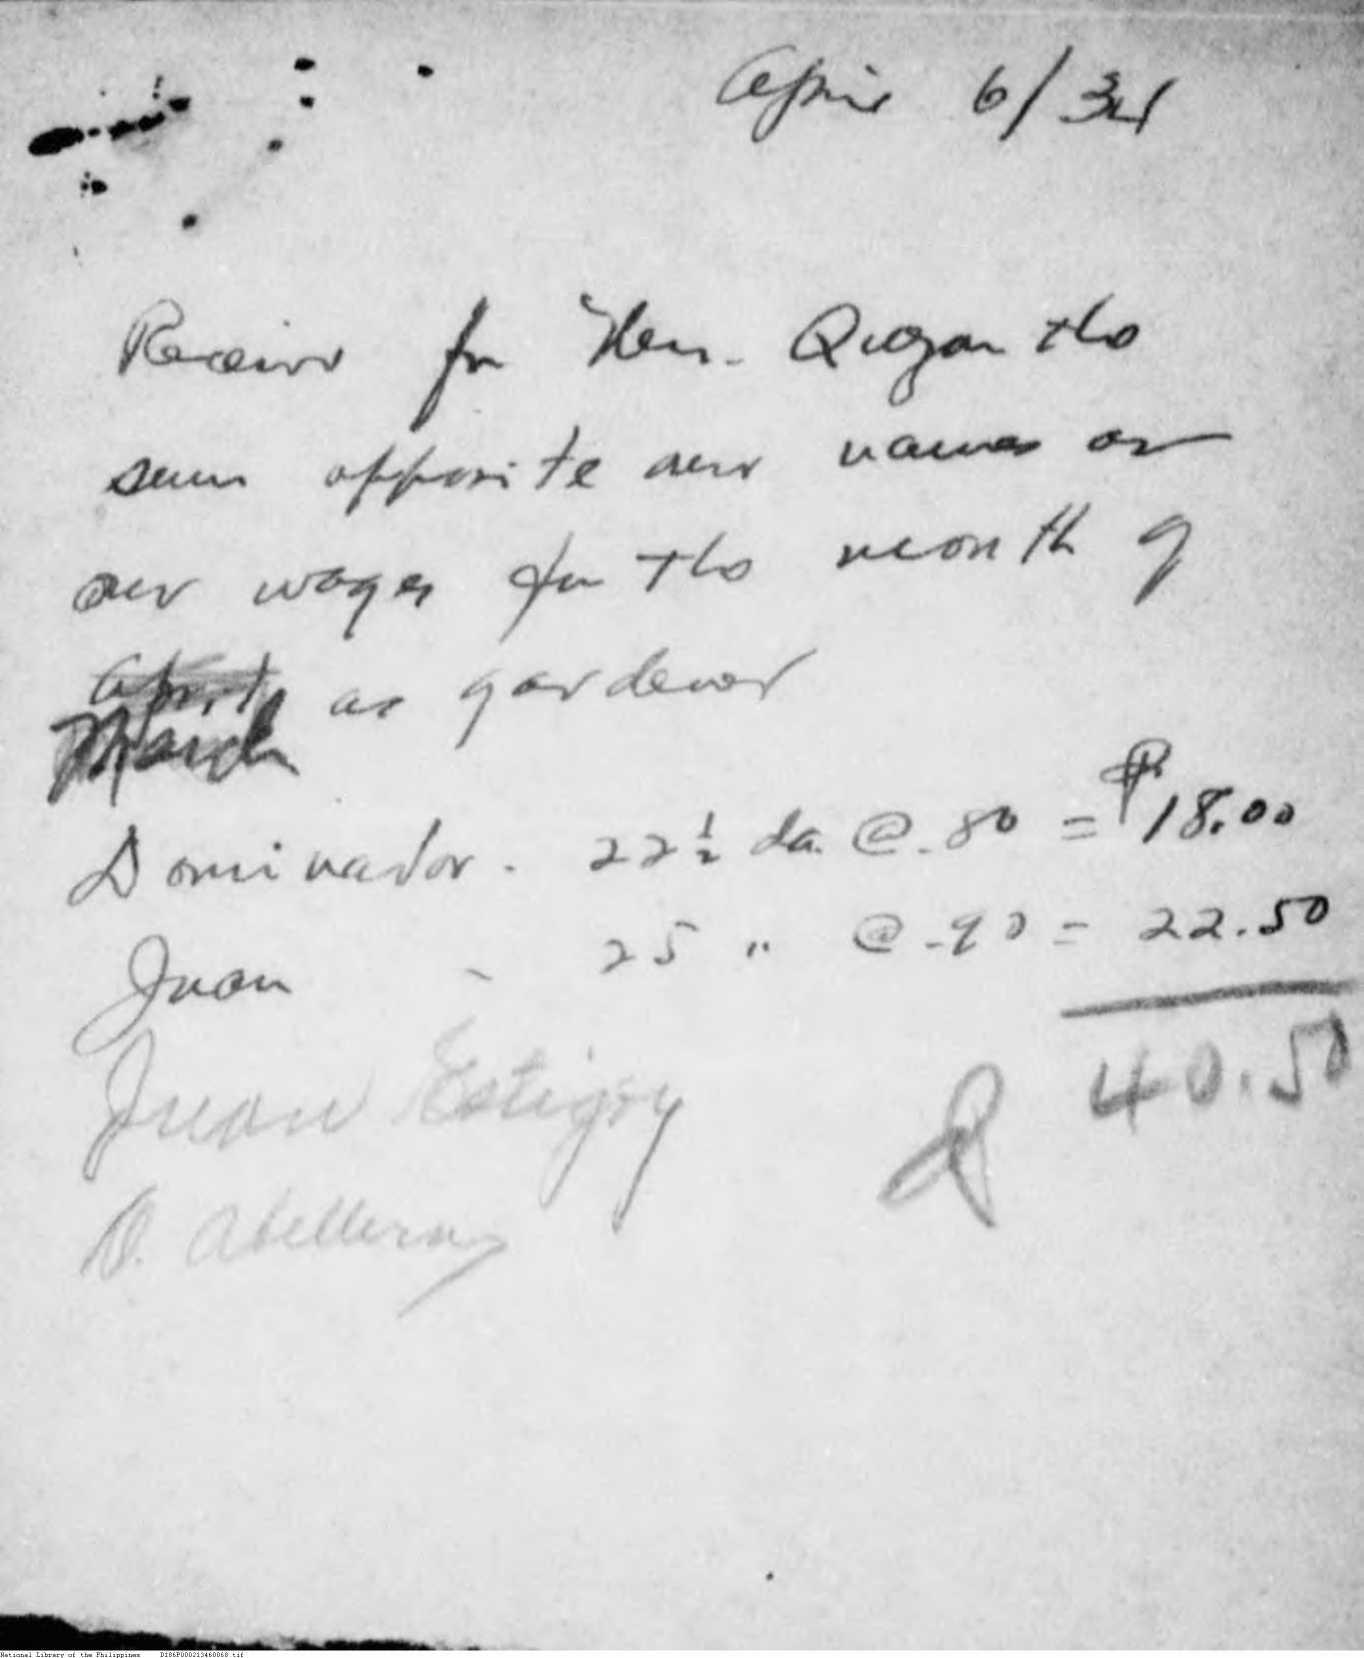 April 6/34
Receive for Hon. Quezon the
sum opposite our names as
our wages for the month of
April as gardener
March
Dominador. 22 1/2 da. @ .80 = ₱18.00
Juan - 25 " @ .90 = 22.50
40.50
Juan
D. Abellera
National Library of the Philippines DI86P000213460068.tif